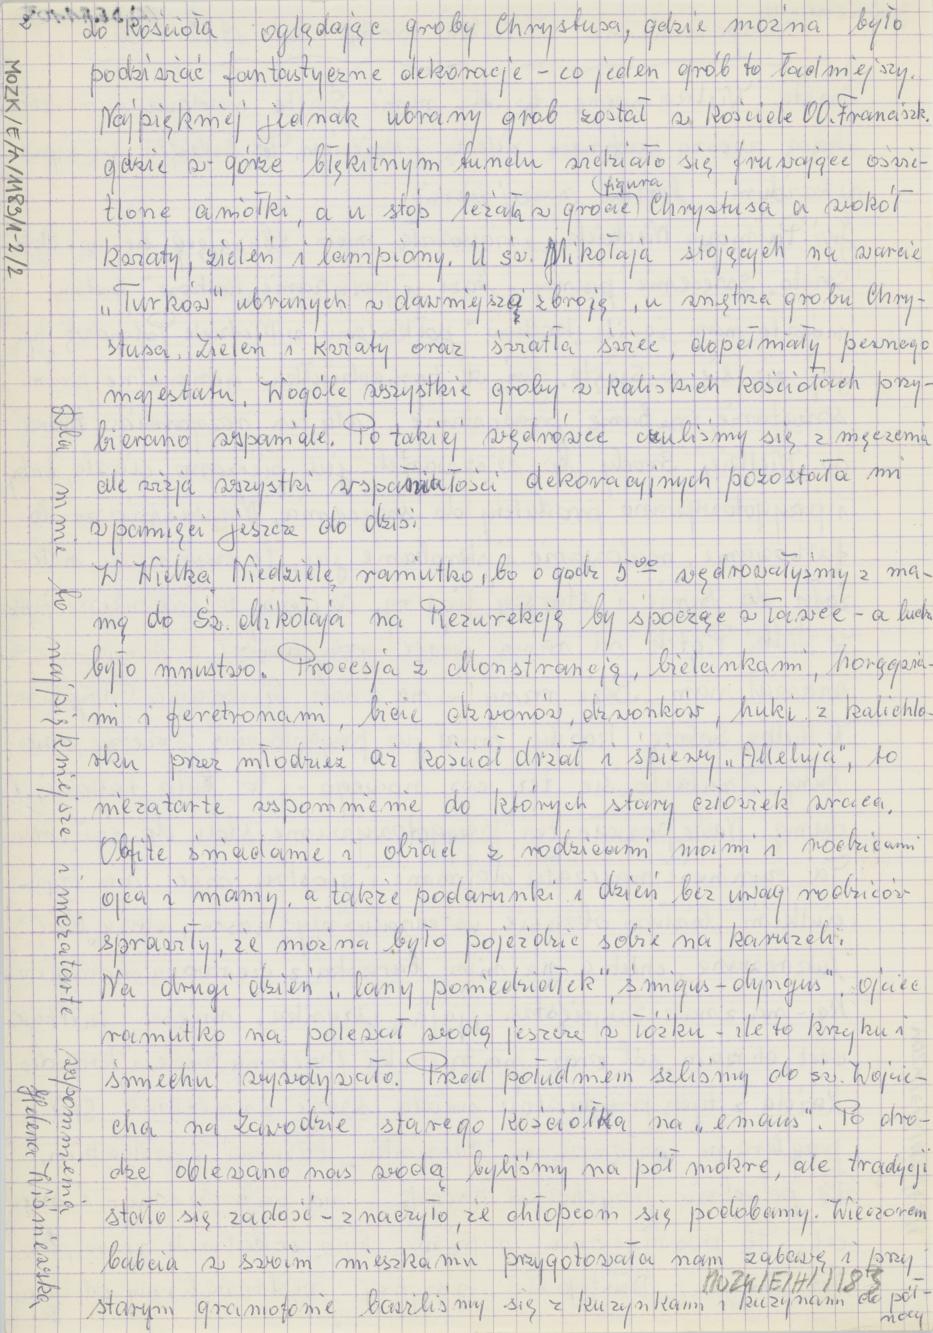 do kościoła oglądając groby Chrystusa, gdzie można było
podziwiać fantastyczne dekoracje - co jeden grób to ładniejszy.
Najpiękniej jednak ubrany grób został w Kościele OO. Franciszk.
gdzie w górze błękitnym tunelu widziało się fruwające oświe-
tlone aniołki, a u stóp leżała w grocie figura Chrystusa a wokół
kwiaty, zieleń i lampiony. U św. Mikołaja stojących na warcie
„Turków" ubranych w dawniejszą zbroję, u wnętrza grobu Chry-
stusa, zieleń i kwiaty oraz światła świec, dopełniały pewnego
majestatu. Wogóle wszystkie groby w Kaliskich Kościołach przy-
bierano wspaniale. Po takiej wędrówce czuliśmy się zmęczeni
ale wizja wszystki wspaniałości dekoracyjnych pozostała mi
w pamięci jeszcze do dziś.
W Wielką Niedzielę raniutko, bo o godz 5⁰⁰ wędrowałyśmy z ma-
mą do św. Mikołaja na Rezurekcję by spocząć w ławce - a ludzi
było mnustwo. Procesja z Monstrancją, bielankami, horągwia-
mi i feretronami, bicie dzwonów, dzwonków, huki z kalichlo-
rku przez młodzież aż kościół drżał i śpiewy „Alleluja", to
niezatarte wspomnienie do których stary człowiek wraca.
Obfite śniadanie i obiad z rodzicami moimi i rodzicami
ojca i mamy, a także podarunki i dzień bez uwag rodziców
sprawiły, że można było pojeździć sobie na karuzeli.
Na drugi dzień „lany poniedziałek", śmigus-dyngus", ojciec
raniutko na polewał wodą jeszcze w łóżku - ile to krzyku i
śmiechu wywoływało. Przed południem szliśmy do św. Wojcie-
cha na Zawodzie starego Kościółka na „emaus". Po dro-
dze oblewano nas wodą byliśmy na pół mokre, ale tradycji
stało się zadość - znaczyło, że chłopcom się podobamy. Wieczorem
babcia w swoim mieszkaniu przygotowała nam zabawę i przy
starym gramofonie bawiliśmy się z kuzynkami i kuzynami do pół-
nocy
Dla mnie to najpiękniejsze i niezatarte wspomnienia
Helena Wiśniewska
MOZK/E/H/1183/1-2/2
MOZK/E/H/1183